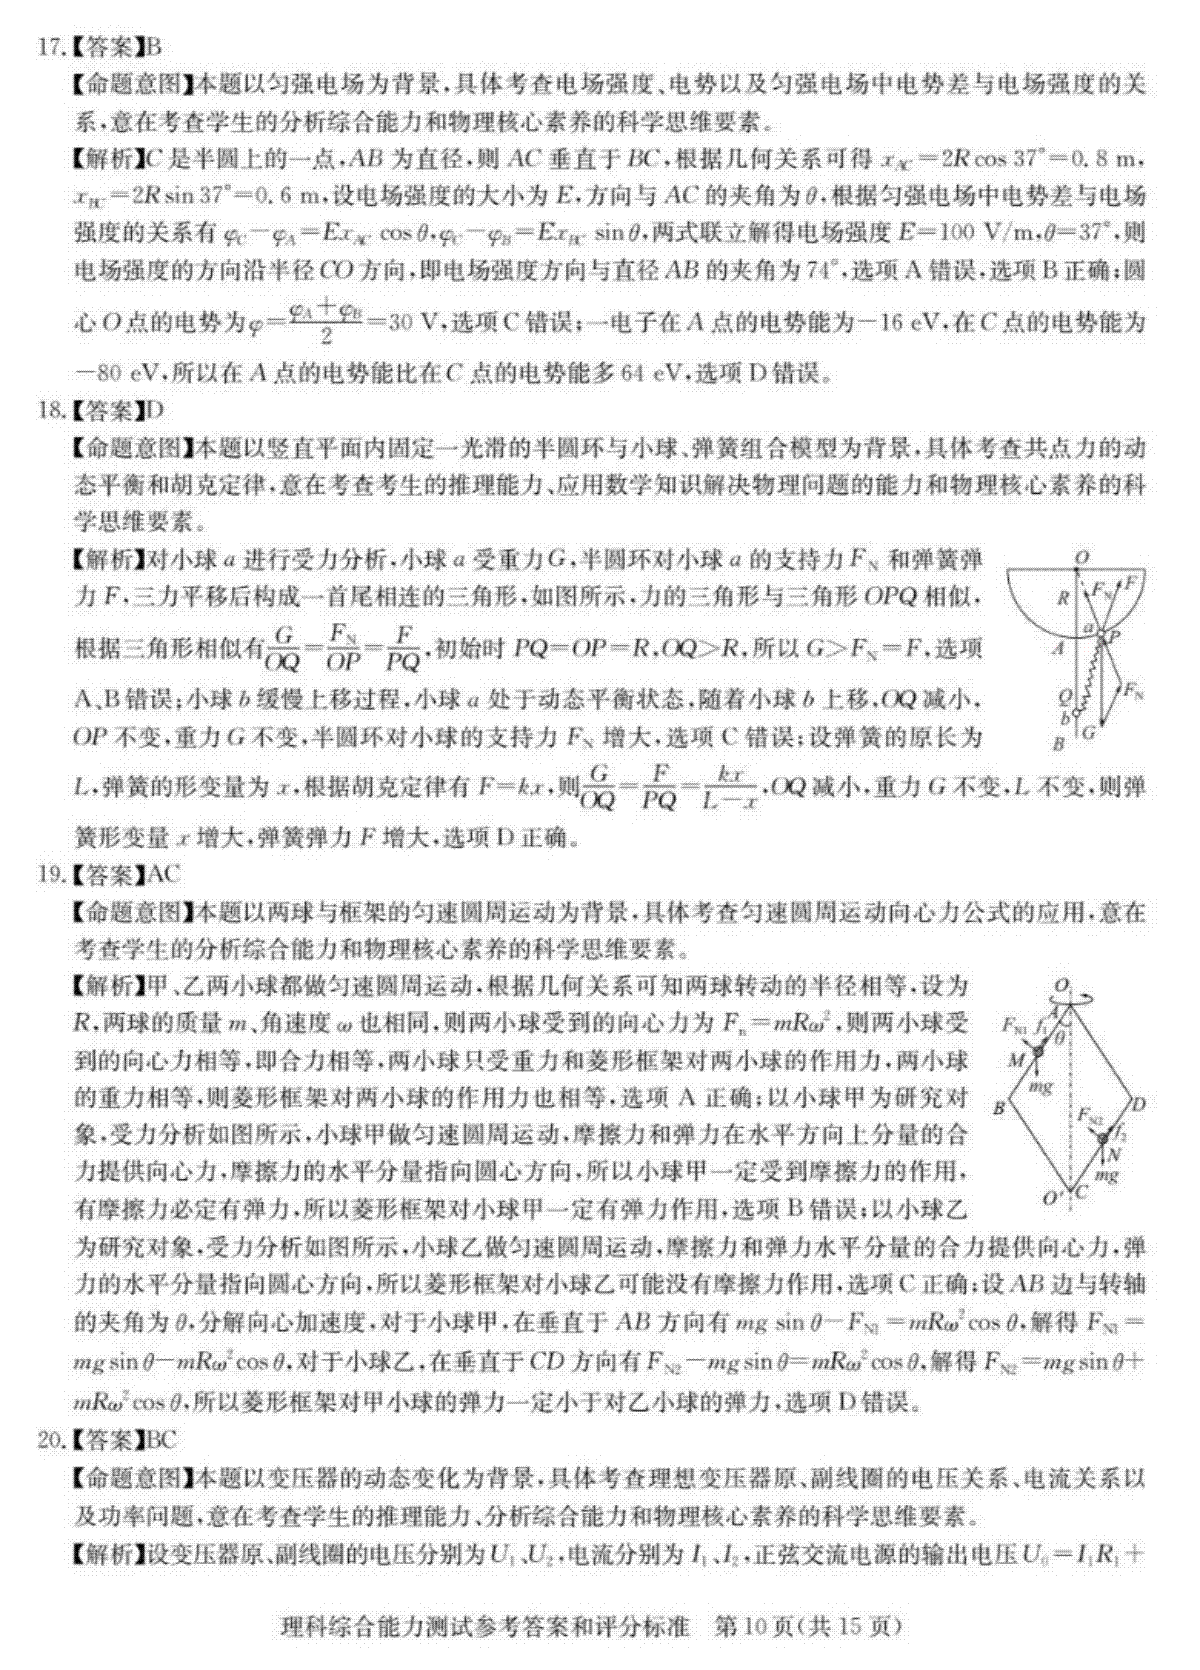 17.【答案】B
【命题意图】本题以匀强电场为背景,具体考查电场强度、电势以及匀强电场中电势差与电场强度的关
系,意在考查学生的分析综合能力和物理核心素养的科学思维要素。
【解析】C是半圆上的一点,AB为直径,则AC垂直于BC,根据几何关系可得 x_AC=2Rcos 37°=0.8 m,
x_BC=2Rsin 37°=0.6 m,设电场强度的大小为E,方向与AC的夹角为θ,根据匀强电场中电势差与电场
强度的关系有 φ_C-φ_A=Ex_AC cos θ,φ_C-φ_B=Ex_BC sin θ,两式联立解得电场强度E=100 V/m,θ=37°,则
电场强度的方向沿半径CO方向,即电场强度方向与直径AB的夹角为74°,选项A错误,选项B正确;圆
心O点的电势为φ=(φ_A+φ_B)/2=30 V,选项C错误;一电子在A点的电势能为-16 eV,在C点的电势能为
-80 eV,所以在A点的电势能比在C点的电势能多64 eV,选项D错误。
18.【答案】D
【命题意图】本题以竖直平面内固定一光滑的半圆环与小球、弹簧组合模型为背景,具体考查共点力的动
态平衡和胡克定律,意在考查考生的推理能力、应用数学知识解决物理问题的能力和物理核心素养的科
学思维要素。
【解析】对小球a进行受力分析,小球a受重力G,半圆环对小球a的支持力F_N和弹簧弹
力F,三力平移后构成一首尾相连的三角形,如图所示,力的三角形与三角形OPQ相似,
根据三角形相似有G/OQ=F_N/OP=F/PQ,初始时PQ=OP=R,OQ>R,所以G>F_N=F,选项
A、B错误;小球b缓慢上移过程,小球a处于动态平衡状态,随着小球b上移,OQ减小,
OP不变,重力G不变,半圆环对小球的支持力F_N增大,选项C错误;设弹簧的原长为
L,弹簧的形变量为x,根据胡克定律有F=kx,则G/OQ=F/PQ=kx/(L-x),OQ减小,重力G不变,L不变,则弹
簧形变量x增大,弹簧弹力F增大,选项D正确。
O
R
F_N
F
a
P
A
Q
F_N
b
G
B
19.【答案】AC
【命题意图】本题以两球与框架的匀速圆周运动为背景,具体考查匀速圆周运动向心力公式的应用,意在
考查学生的分析综合能力和物理核心素养的科学思维要素。
【解析】甲、乙两小球都做匀速圆周运动,根据几何关系可知两球转动的半径相等,设为
R,两球的质量m、角速度ω也相同,则两小球受到的向心力为F_n=mRω²,则两小球受
到的向心力相等,即合力相等,两小球只受重力和菱形框架对两小球的作用力,两小球
的重力相等,则菱形框架对两小球的作用力也相等,选项A正确;以小球甲为研究对
象,受力分析如图所示,小球甲做匀速圆周运动,摩擦力和弹力在水平方向上分量的合
力提供向心力,摩擦力的水平分量指向圆心方向,所以小球甲一定受到摩擦力的作用,
有摩擦力必定有弹力,所以菱形框架对小球甲一定有弹力作用,选项B错误;以小球乙
为研究对象,受力分析如图所示,小球乙做匀速圆周运动,摩擦力和弹力水平分量的合力提供向心力,弹
力的水平分量指向圆心方向,所以菱形框架对小球乙可能没有摩擦力作用,选项C正确;设AB边与转轴
的夹角为θ,分解向心加速度,对于小球甲,在垂直于AB方向有mg sin θ-F_N1=mRω²cos θ,解得F_N1=
mgsin θ-mRω²cos θ,对于小球乙,在垂直于CD方向有F_N2-mgsin θ=mRω²cos θ,解得F_N2=mgsin θ+
mRω²cos θ,所以菱形框架对甲小球的弹力一定小于对乙小球的弹力,选项D错误。
O
F_N1
f_1
A
θ
M
mg
B
D
F_N2
f_2
N
mg
O′
C
20.【答案】BC
【命题意图】本题以变压器的动态变化为背景,具体考查理想变压器原、副线圈的电压关系、电流关系以
及功率问题,意在考查学生的推理能力、分析综合能力和物理核心素养的科学思维要素。
【解析】设变压器原、副线圈的电压分别为U_1、U_2,电流分别为I_1、I_2,正弦交流电源的输出电压U_0=I_1R_1+
理科综合能力测试参考答案和评分标准 第10页(共15页)